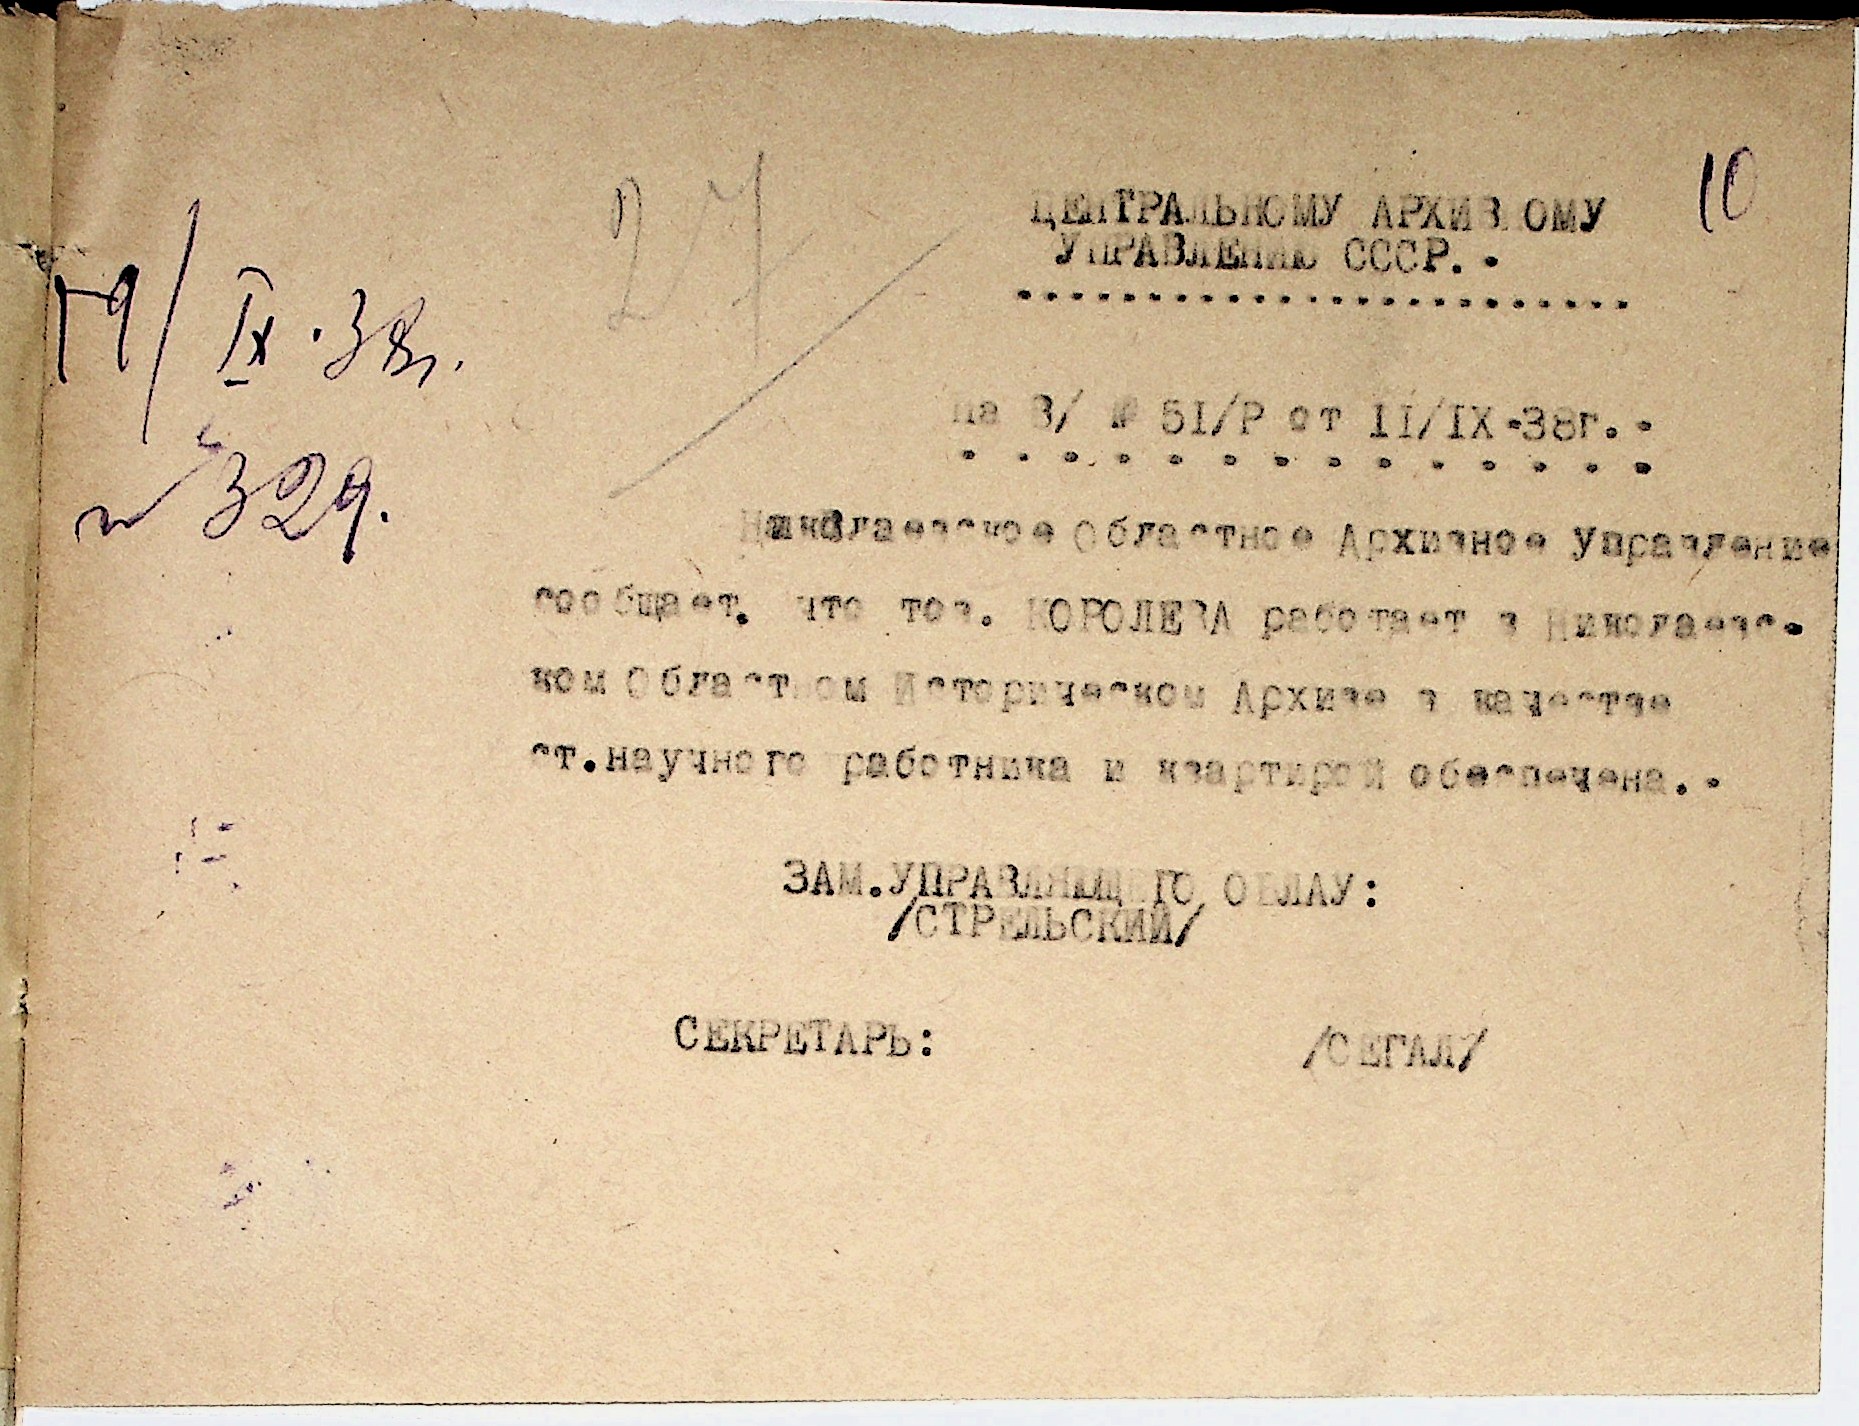 10
27
ЦЕНТРАЛЬНОМУ АРХИВНОМУ
УПРАВЛЕНИЮ СССР.-
19/IX.38г.
№ 329.
на В/ № 51/Р от 11/IX-38г.-
Николаевское Областное Архивное Управление
сообщает, что тов. КОРОЛЕВА работает в Николаевс-
ком Областном Историческом Архиве в качестве
ст.научного работника и квартирой обеспечена.-
ЗАМ.УПРАВЛЯЮЩЕГО ОБЛАУ:
/СТРЕЛЬСКИЙ/
СЕКРЕТАРЬ: /СЕГАЛ/